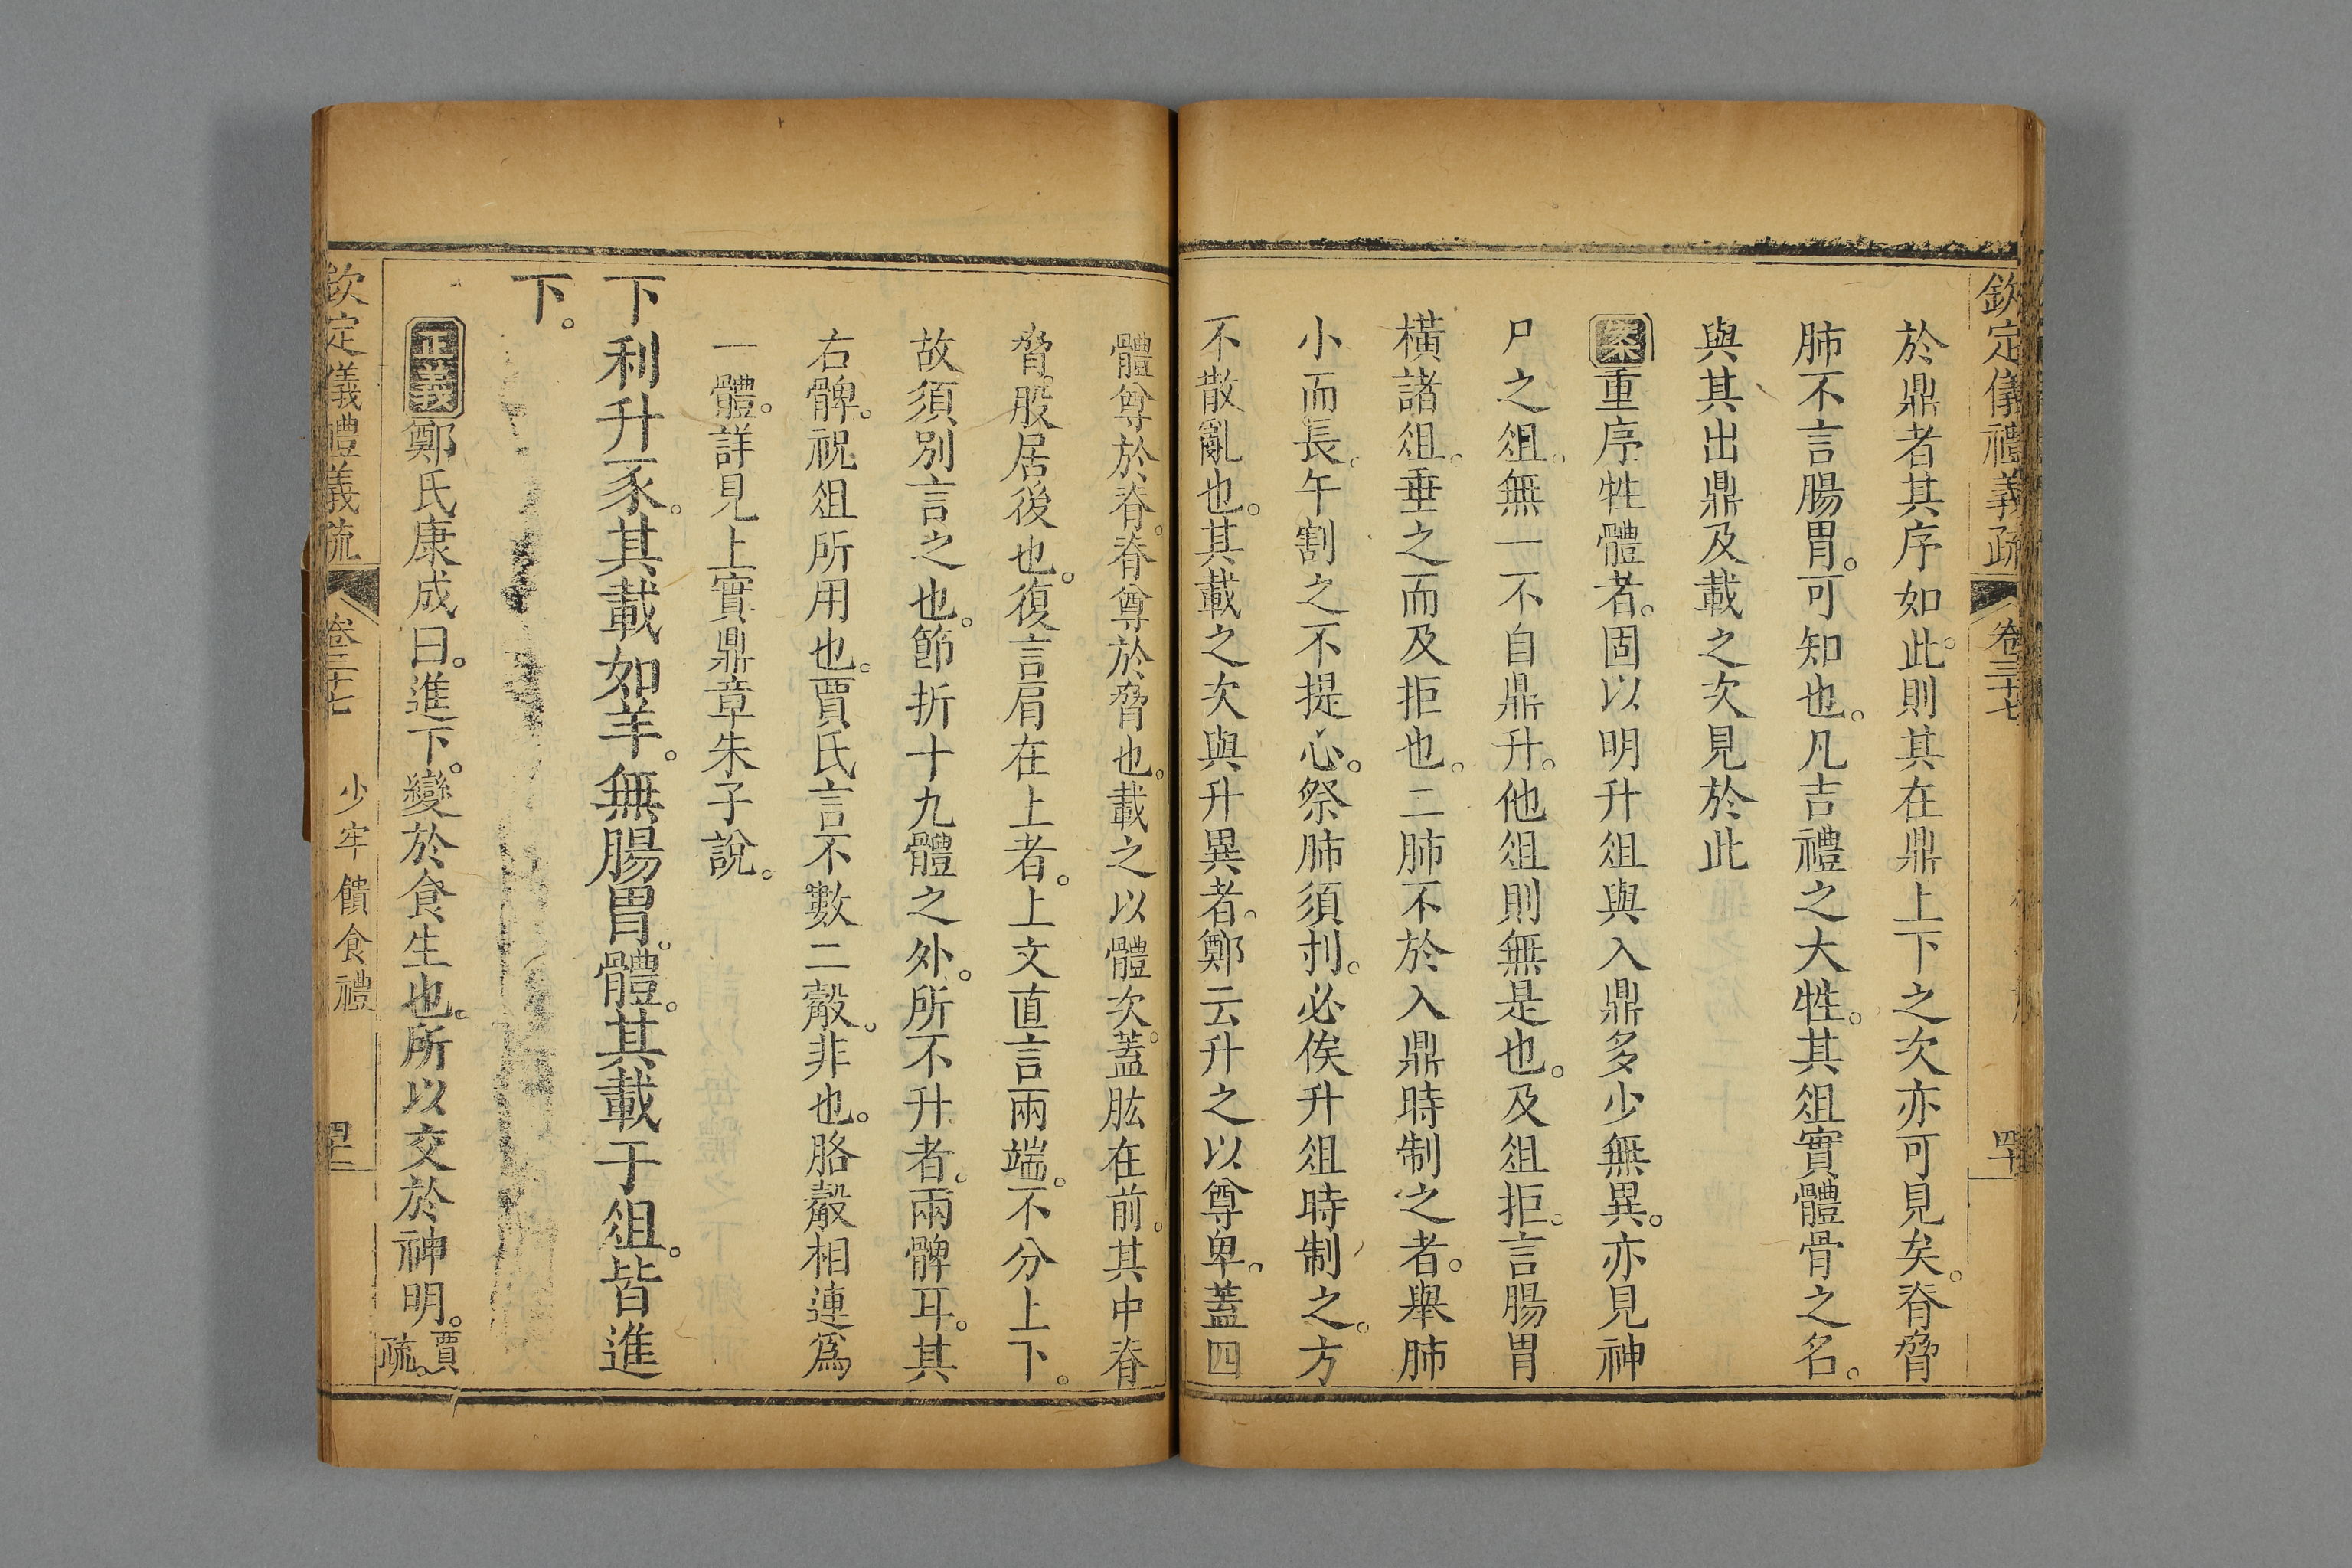 欽定儀禮義疏 卷三十七 四十
於鼎者其序如此。則其在鼎上下之次亦可見矣。脊脅
肺不言腸胃。可知也。凡吉禮之大牲。其俎實體骨之名。
與其出鼎及載之次見於此
案重序牲體者。固以明升俎與入鼎多少無異。亦見神
尸之俎。無一不自鼎升。他俎則無是也。及俎拒。言腸胃
橫諸俎。垂之而及拒也。二肺不於入鼎時制之者。舉肺
小而長。午割之不提心。祭肺須刌。必俟升俎時制之。方
不散亂也。其載之次與升異者。鄭云升之以尊卑。蓋四
體尊於脊。脊尊於脅也。載之以體次。蓋肱在前。其中脊
脅。股居後也。復言肩在上者。上文直言兩端。不分上下。
故須別言之也。節折十九體之外。所不升者。兩髀耳。其
右髀。祝俎所用也。賈氏言不數二觳。非也。胳觳相連爲
一體。詳見上實鼎章朱子說。
下利升豕。其載如羊。無腸胃。體。其載于俎。皆進
下。
正義鄭氏康成曰。進下。變於食生也。所以交於神明。賈疏。
欽定儀禮義疏 卷三十七 少牢饋食禮